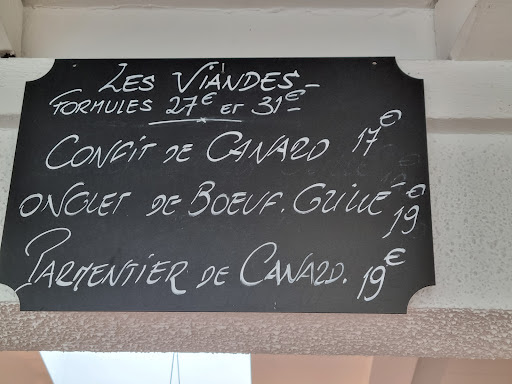 LES VIANDES-
FORMULES 27€ ET 31€-
CONFIT DE CANARD 17€
ONGLET DE BOEUF. GRILLÉ 19€
PARMENTIER DE CANARD. 19€